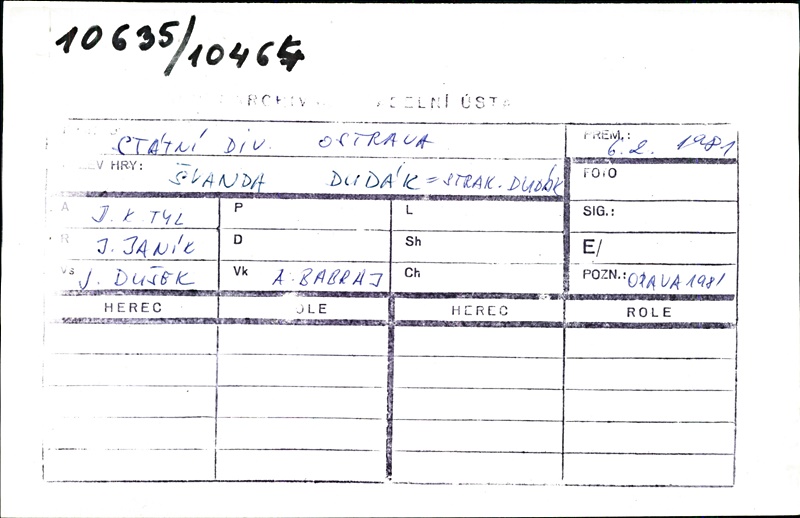 10635/10464
ARCHIV DELNÍ ÚSTA
STÁTNÍ DIV. OSTRAVA PREM.: 6.2. 1981
EV HRY: ŠVANDA DUDÁK = STRAK. DUDÁK FOTO
A J. K. TYL P L SIG.:
R J. JANÍK D Sh E/
Vs J. DUŠEK Vk A. BABRAJ Ch POZN.: OPAVA 1981
HEREC OLE HEREC ROLE